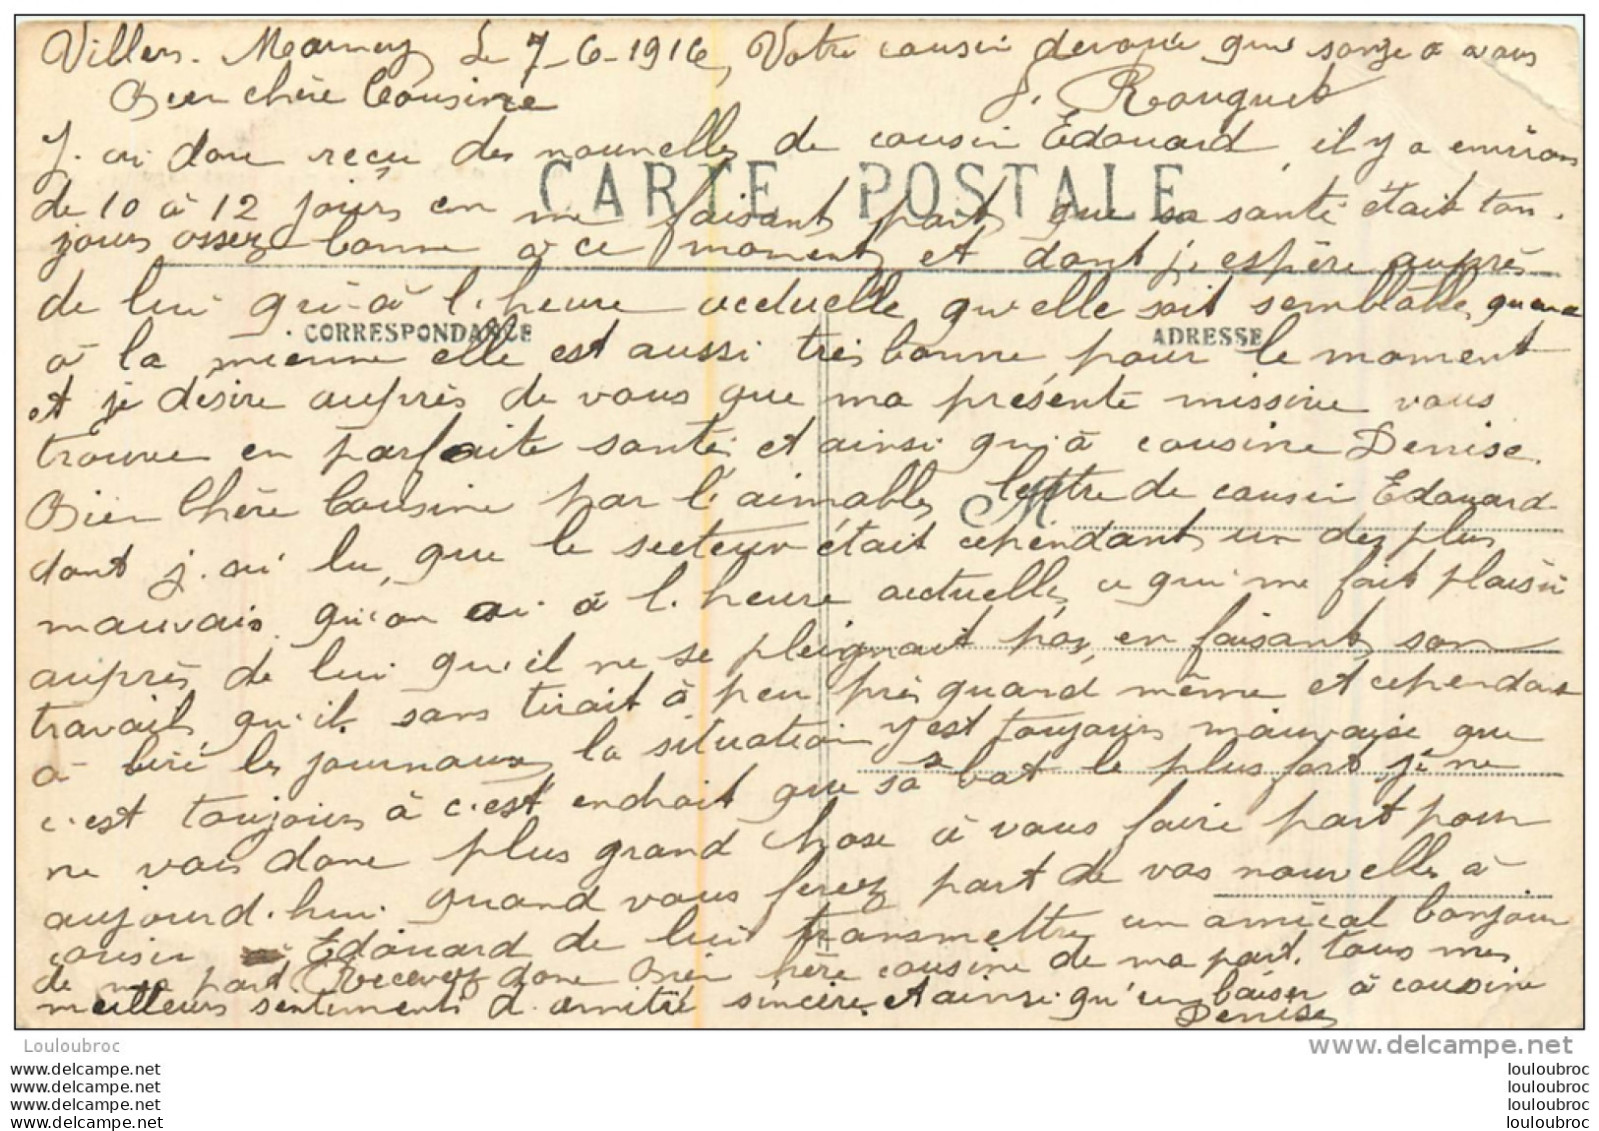 Villers. Marmery le 7-6-1916, Votre cousin dévoué qui songe à vous
Bien chère Cousine J. Rouquet
J. ai donc reçu des nouvelles de cousin Edouard, il y a environ
CARTE POSTALE
de 10 à 12 jours en me faisant part que sa santé était tou.
jours assez bonne à ce moment et dont j. espère auprès
de lui qui-à l. heure acctuelle qu'elle soit semblable, quand
CORRESPONDANCE ADRESSE
à la mienne elle est aussi très bonne pour le moment
et je désire auprès de vous que ma présente missive vous
trouve en parfaite santé et ainsi qui à cousine Denise.
Bien Chère Cousine par l'aimable lettre de cousin Edouard
M
dont j. ai lu, que le secteur était cependant un des plus
mauvais qui'on ai à l. heure acctuelle, ce qui me fait plaisir
auprès de lui qu'il ne se pleignait pas, en faisant son
travail qu'il sans tirait à peu près quand même et cependant
à liré les journaux la situation y est toujours mauvaise que
c'est toujours à c'est endroit que sa bat le plus fort je ne
ne vois donc plus grand chose à vous faire part pour
aujourd.hui. quand vous ferez part de vos nouvelles à
cousin Edouard de lui transmettre un amical bonjour
de ma part. Recevez donc Bien chère cousine de ma part. tous mes
meilleurs sentiments d. amitié sincère. et ainsi qu'un baiser à cousine
Denise
Louloubroc www.delcampe.net
www.delcampe.net louloubroc
www.delcampe.net louloubroc
www.delcampe.net louloubroc
www.delcampe.net louloubroc